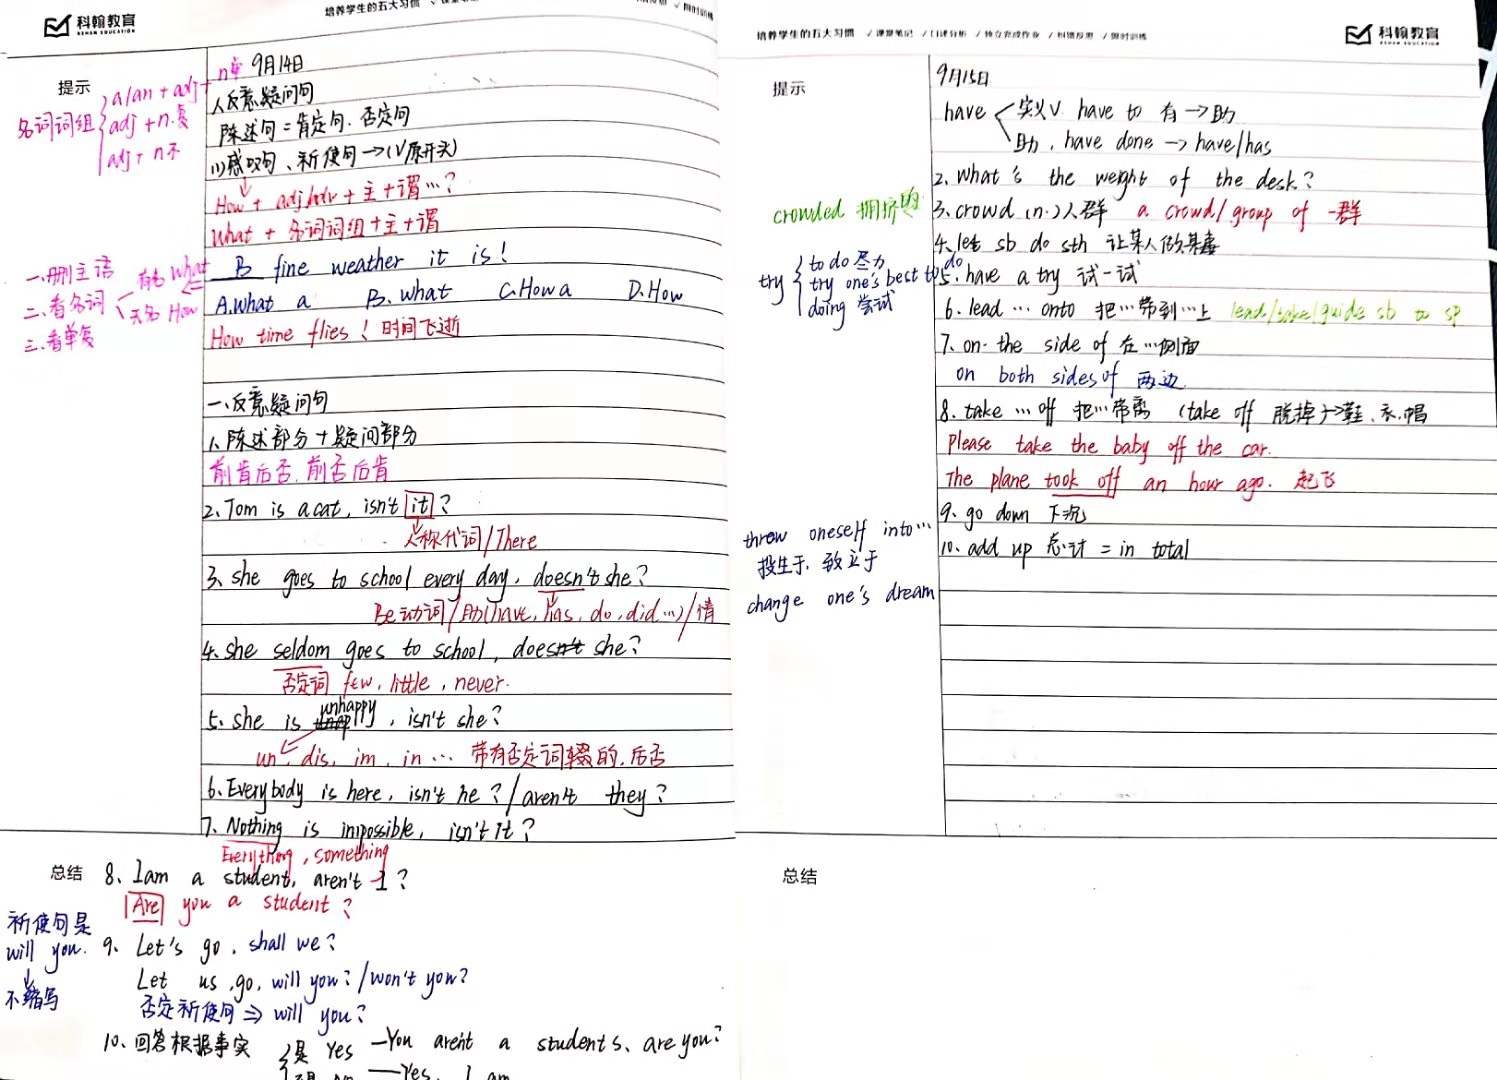 科翰教育
KEHAN EDUCATION
培养学生的五大习惯
提示
9月14日
名词词组
a/an + adj + n单
adj + n.复
adj + n不
1.反意疑问句
陈述句 = 肯定句. 否定句
(1)感叹句、祈使句→(V原开头)
How + adj/adv + 主 + 谓…?
What + 名词词组 + 主 + 谓
一.删主语
二.看名词
有名 What
无名 How
三.看单复
B fine weather it is!
A.What a B. What C.How a D.How
How time flies! 时间飞逝
一.反意疑问句
1. 陈述部分 + 疑问部分
前肯后否. 前否后肯
2. Tom is a cat, isn't it?
人称代词/There
3. she goes to school every day, doesn't she?
Be动词/助(have, has, do, did…)/情
4. she seldom goes to school, does she?
否定词 few, little, never.
5. she is unhappy, isn't she?
un, dis, im, in … 带有否定词缀的, 后否
6. Everybody is here, isn't he?/aren't they?
7. Nothing is impossible, isn't it?
Everything, something
总结
8、I am a student, aren't I?
Are you a student?
祈使句是
will you.
不缩写
9、Let's go, shall we?
Let us go, will you?/won't you?
否定祈使句⇒ will you?
10、回答根据事实
是 Yes —You aren't a students, are you?
—Yes, I am
培养学生的五大习惯 ✓课堂笔记 ✓口述分析 ✓独立完成作业 ✓纠错反思 ✓限时训练
科翰教育
KEHAN EDUCATION
提示
9月15日
have
实义V. have to 有→助
助. have done → have/has
2. what's the weight of the desk?
3. crowd (n.)人群 a crowd/group of 一群
crowded 拥挤的
4. let sb do sth 让某人做某事
try
to do 尽力
try one's best to do
doing 尝试
5. have a try 试一试
6. lead … onto 把…带到…上 lead/take/guide sb to sp
7. on the side of 在…侧面
on both sides of 两边
8. take … off 把…带离 (take off 脱掉→鞋、衣.帽
please take the baby off the car.
The plane took off an hour ago. 起飞
9. go down 下沉
10. add up 总计 = in total
throw oneself into…
投生于, 致力于
change one's dream
总结